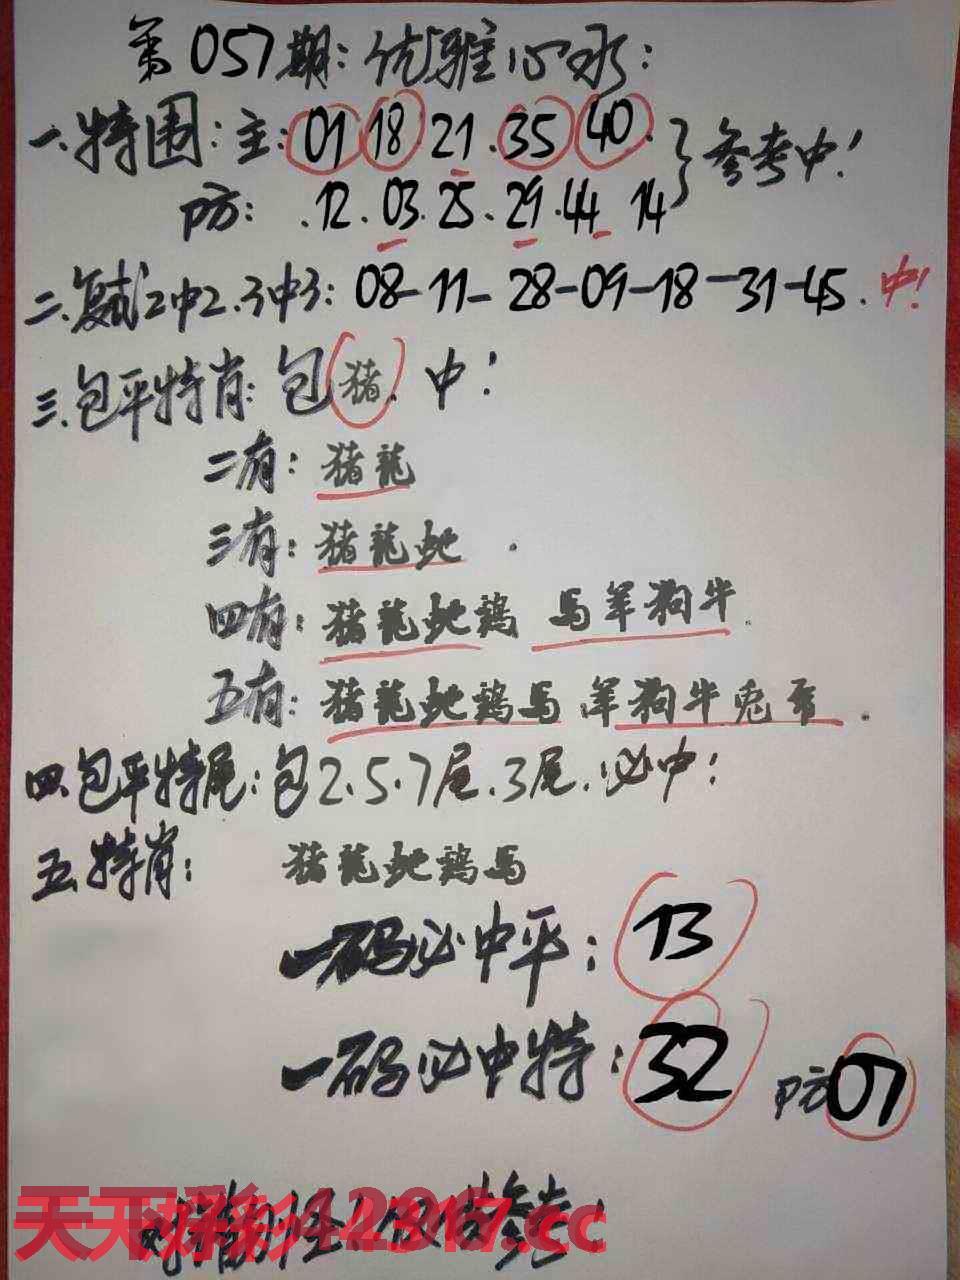 第057期:优雅心水:
一.特围:主:01 18 21.35 40. }参考中!
防:.12.03.25.29.44 14
二.复试2中2.3中3:08-11-28-09-18-31-45.中!
三.包平特肖:包猪.中!
二有:猪龍
三有:猪龍蛇.
四有:猪龍蛇鷄 馬羊狗牛.
五有:猪龍蛇鷄馬 羊狗牛兔.
四.包平特尾:包2.5.7尾.3尾.必中!
五.特肖:猪龍蛇鷄馬
一码必中平:13
一码必中特:32 防07
天下彩
.cc
参考!